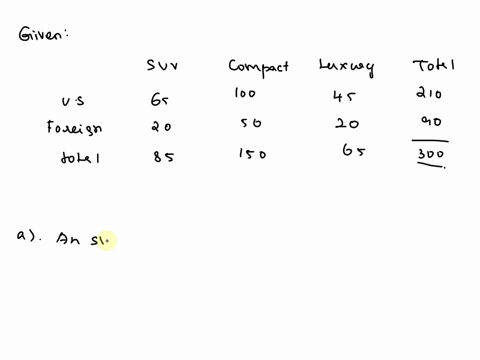 Given:
SUV Compact Luxury Total
US 65 100 45 210
Foreign 20 50 20 90
total 85 150 65 300
a). An SU